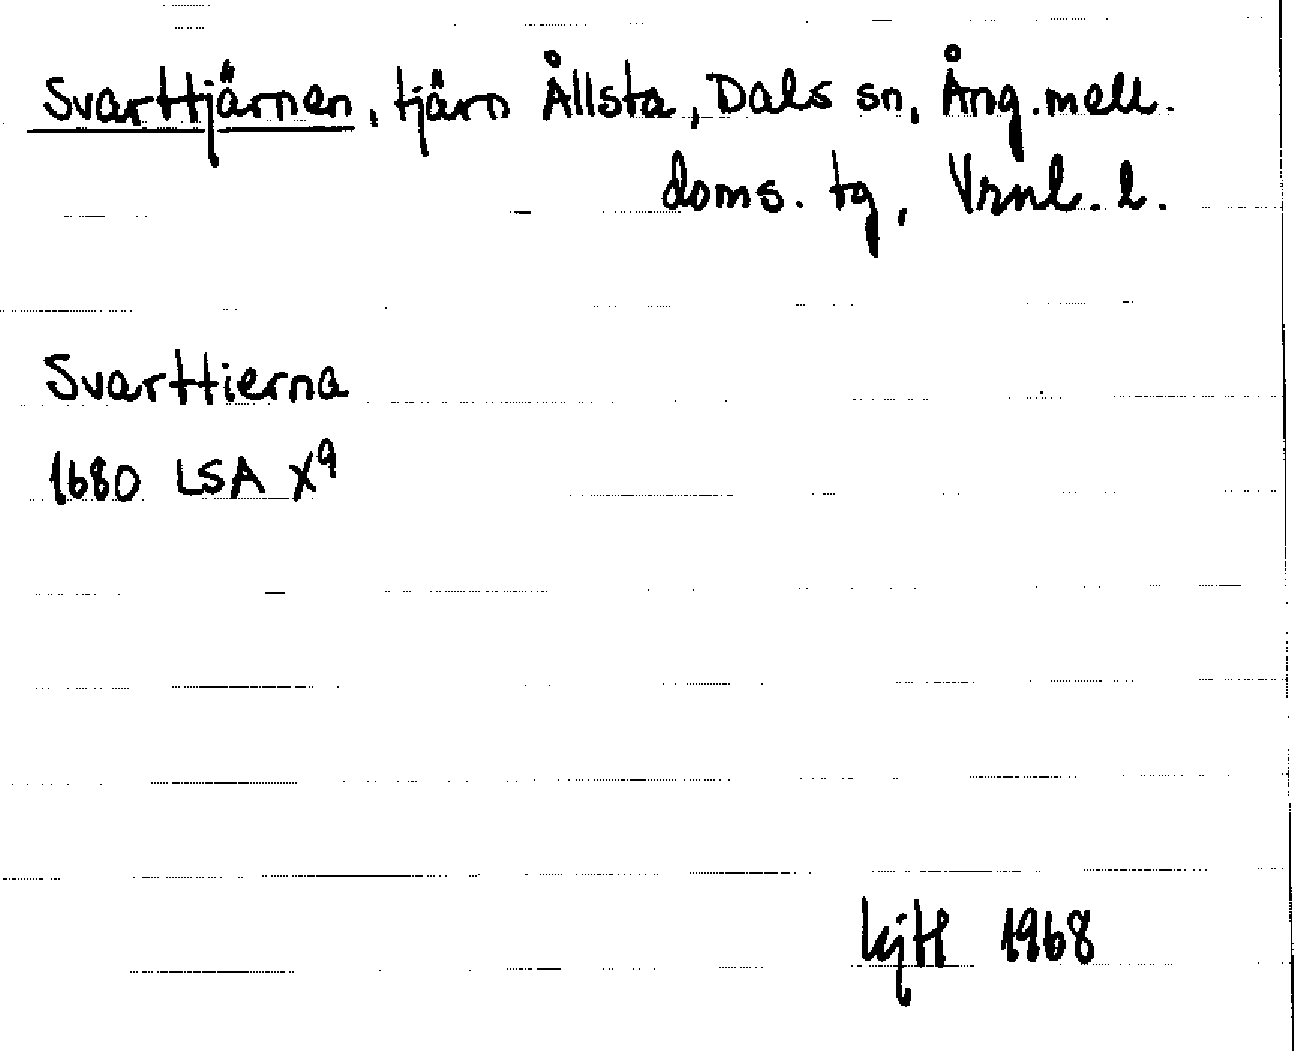 Svarttjärnen, tjärn Ållsta, Dals sn, Ång.mell.
doms. tg, Vrnl. l.
Svarttierna
1680 LSA X9
1968